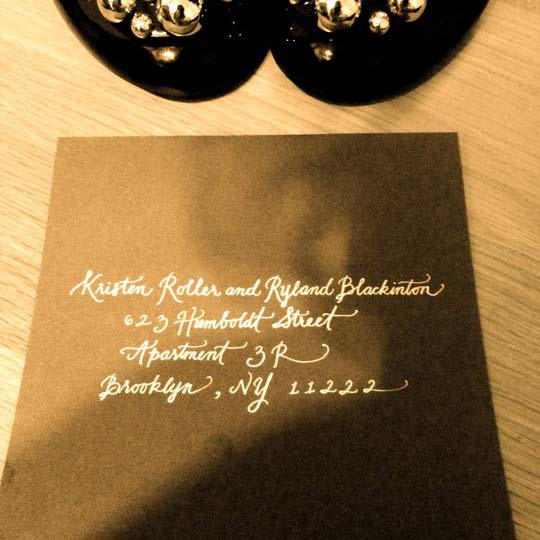 Kristen Roller and Ryland Blackinton
623 Humboldt Street
Apartment 3R
Brooklyn, NY 11222